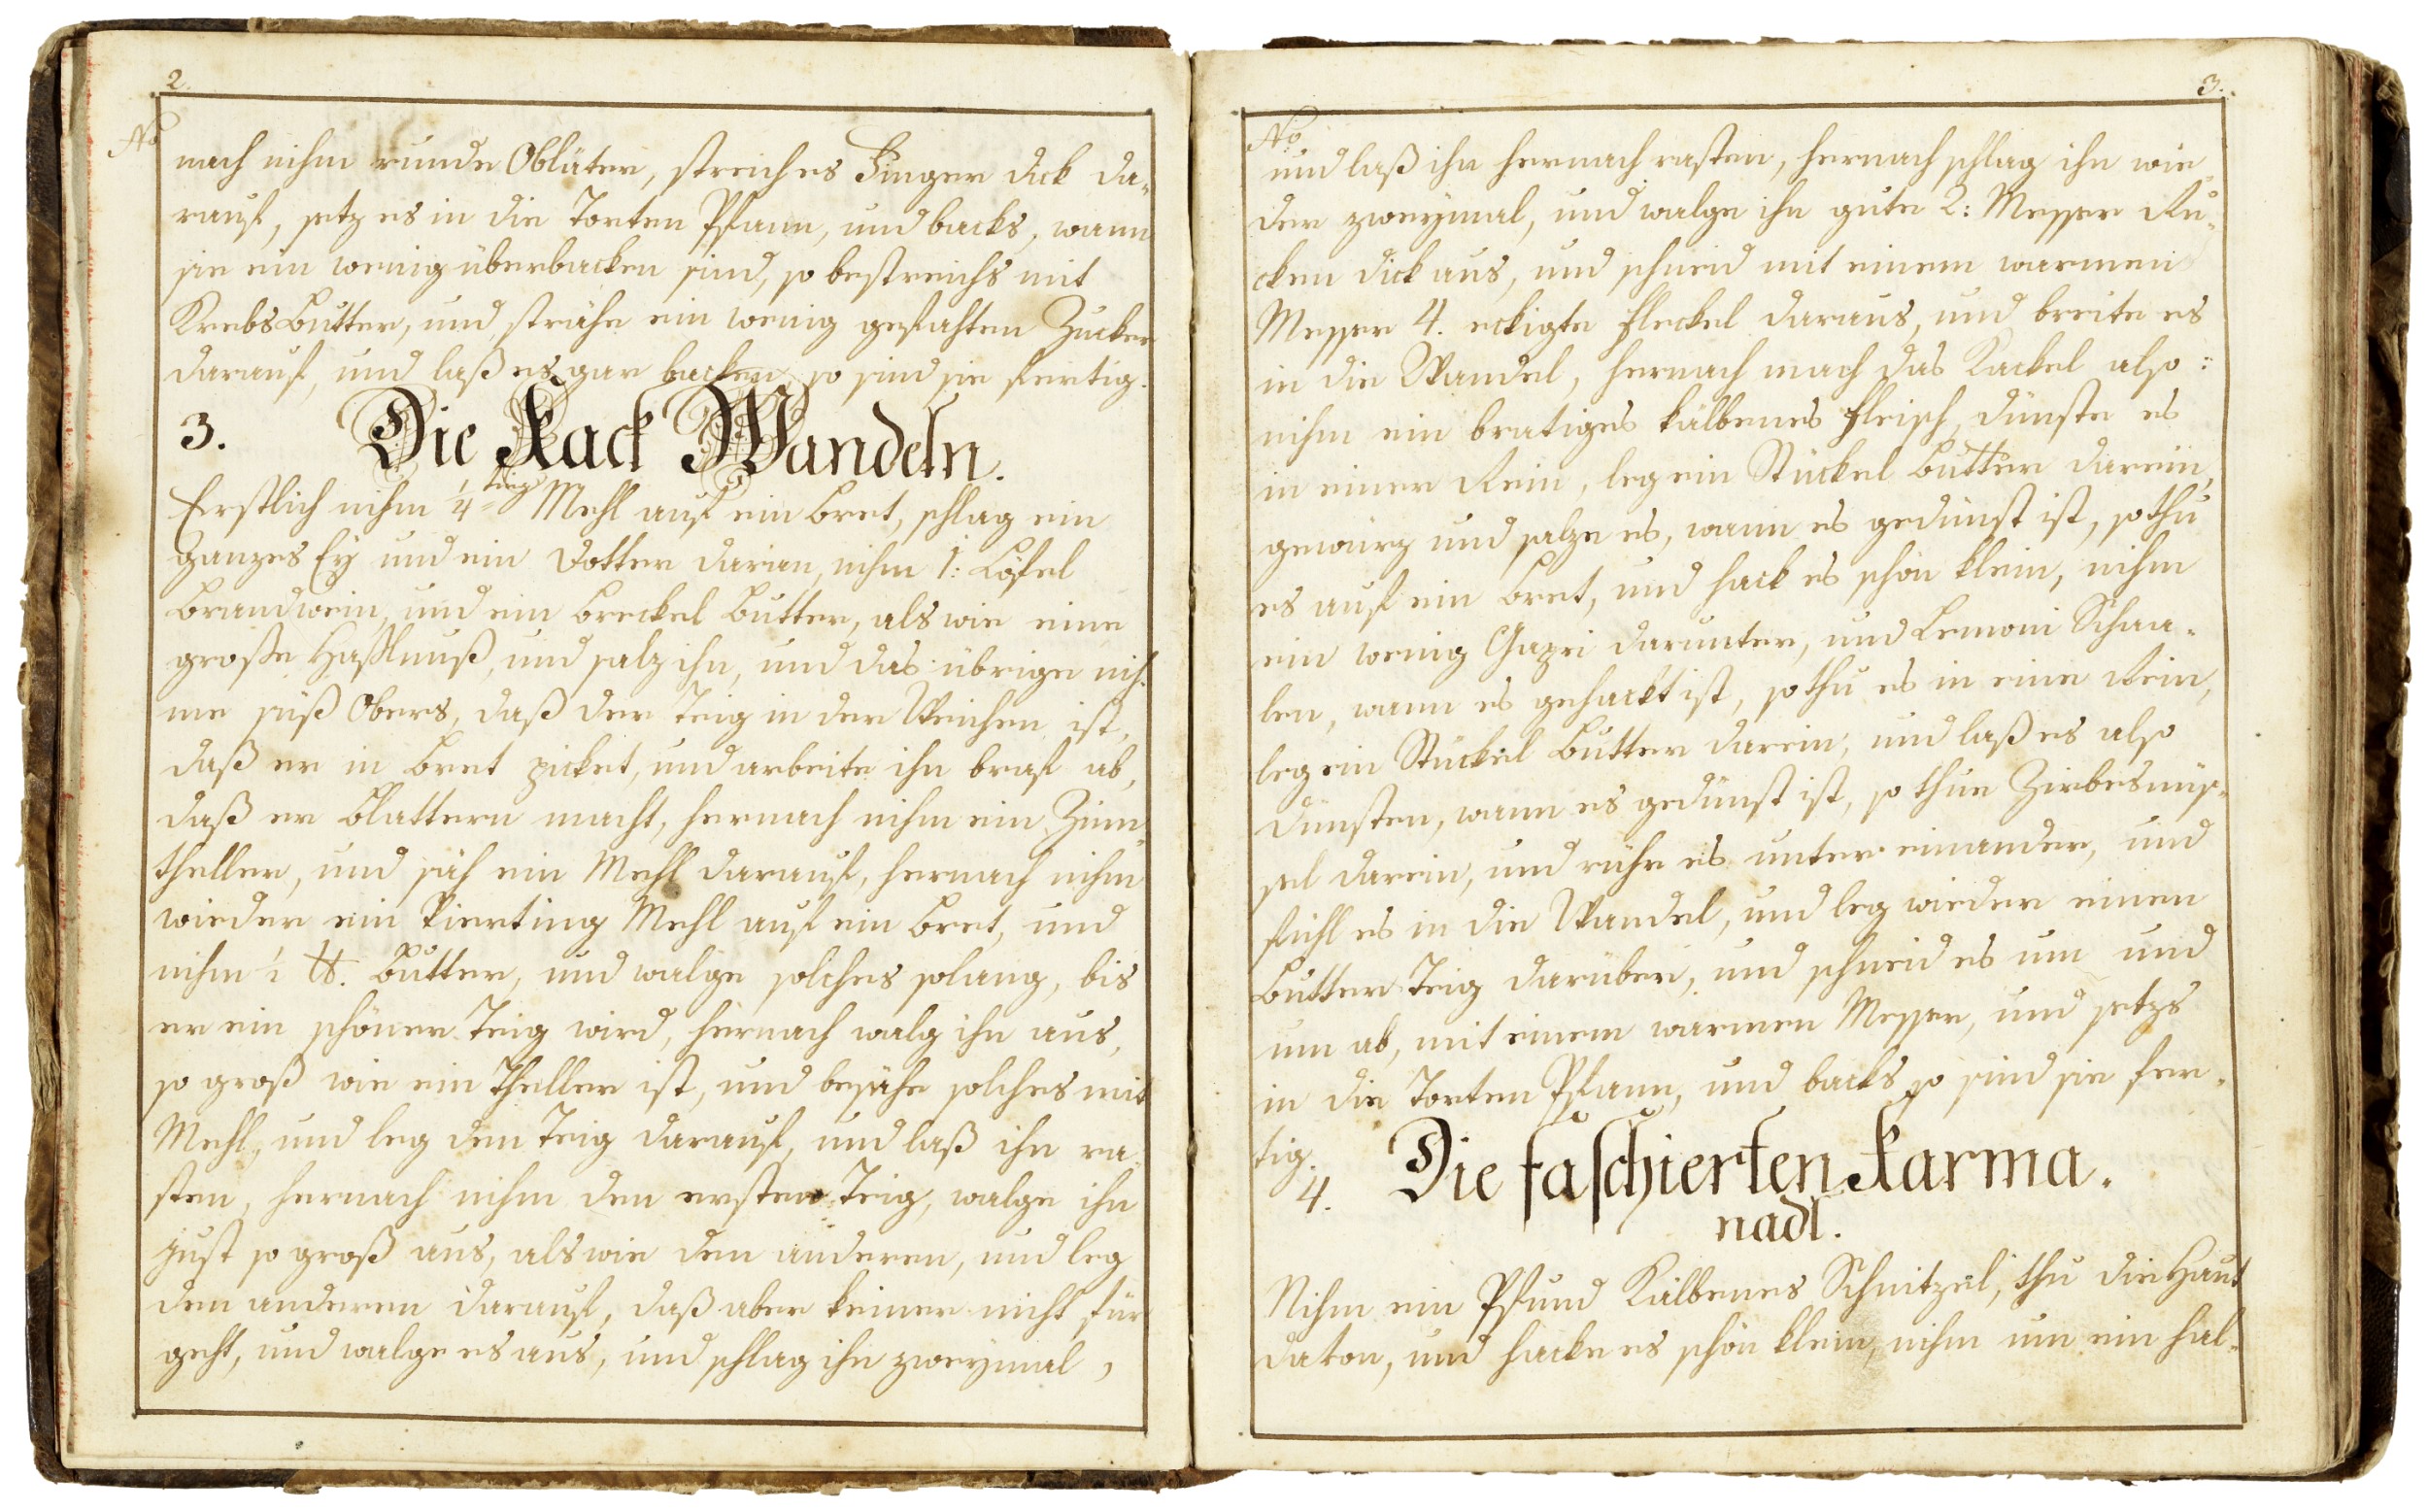 2.
No
nach nihm runde Oblater, streich es Finger dick da-
rauf, setz es in die Torten Pfann, und backs, wann
sie ein wenig überbacken sind, so bestreichs mit
Krebs Butter, und strähe ein wenig gefähten Zucker
darauf, und laß es gar backen, so sind sie fertig.
3. Die Kack Wandeln.
Erstlich nihm 1/4ting Mehl auf ein Bret, schlag ein
ganzes Ey und ein Dotter darian, nihm 1: Löfel
Brandwein, und ein Breckel Butter, als wie eine
große Haßlnuß, und salz ihn, und das übrige nih-
me süß Obers, daß der Teig in der Weichen ist,
daß er in Bret picket, und arbeite ihn braf ab,
daß er Blattern macht, hernach nihm ein Zinn
theller, und säh ein Mehl darauf, hernach nihm
wieder ein Vierting Mehl auf ein Bret, und
nihm 1 ℔. Butter, und walge solches solang, bis
er ein schöner Teig wird, hernach walg ihn aus,
so groß wie ein Theller ist, und besähe solches mit
Mehl, und leg den Teig darauf, und laß ihn ra-
sten, hernach nihm den ersten Teig, walge ihn
just so groß aus, als wie den anderen, und leg
den anderen darauf, daß aber keiner nicht für
geht, und walge es aus, und schlag ihn zweymal,
3.
No
und laß ihn hernach rasten, hernach schlag ihn wie-
der zweymal, und walge ihn gute 2: Messer Ru-
cken dick aus, und schneid mit einem warmen
Messer 4. eckigte Fleckel daraus, und breite es
in die Wandel, hernach mach das Kackel also:
nihm ein bratiges kälbenes Fleisch, dünste es
in einer Rein, leg ein Stückel Butter darein,
gewürz und salze es, wann es gedünst ist, so thu
es auf ein Bret, und hack es schön klein, nihm
ein wenig Gapri darunter, und Lemoni Schaa-
len, wann es gehackt ist, so thu es in eine Rein,
leg ein Stückel Butter darein, und laß es also
dünsten, wann es gedünst ist, so thue Zirbesnüs-
sel darein, und rühr es unter einander, und
fühl es in die Wandel, und leg wieder einen
Butter Teig darüber, und schneid es um und
um ab, mit einem warmen Messer, und setzs
in die Torten Pfann, und backs so sind sie fer-
tig.
4. Die faschierten Karma.
nadl.
Nihm ein Pfund Kälbenes Schnitzel, thu die Haut
davon, und hacke es schön klein, nihm um ein hal-